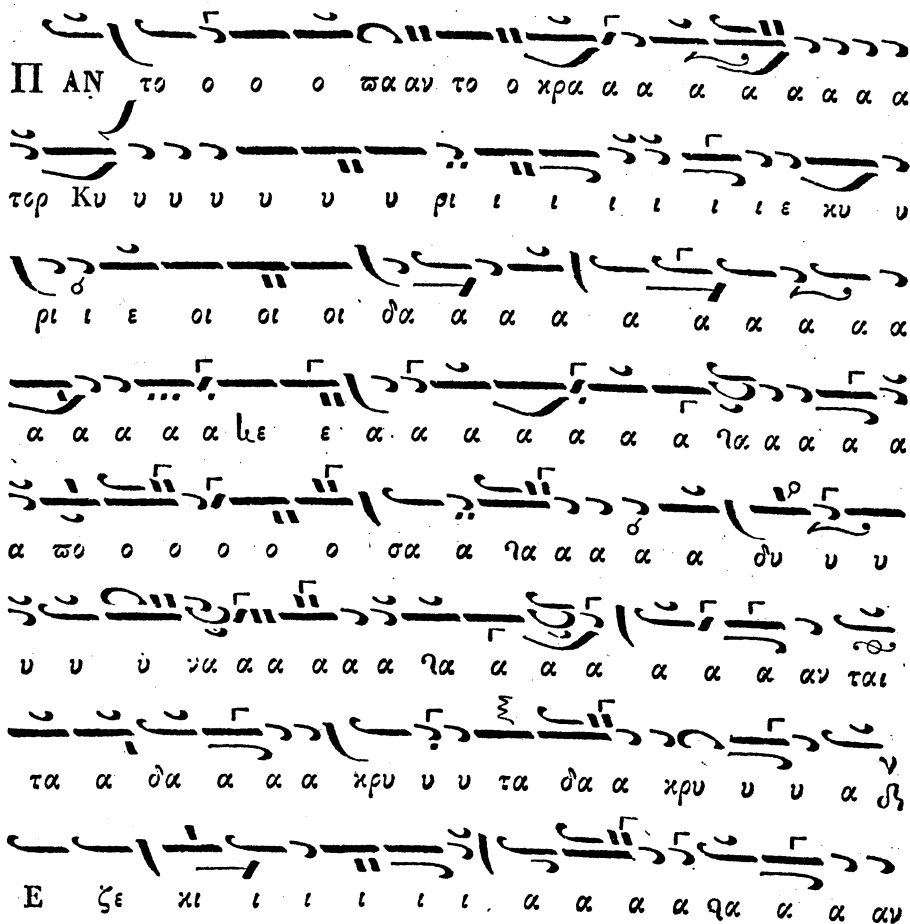 Π ΑΝ το ο ο ο ϖα αν το ο κρα α α α α α α α
τορ Κυ υ υ υ υ υ υ ρι ι ι ι ι ι ι ε κυ υ
ρι ι ε οι οι οι δα α α α α α α α α
α α α α α κε ε α α α α α α α γα α α α α
α ϖο ο ο ο ο ο σα α γα α α α α δυ υ υ
υ υ υ να α α α α α γα α α α α α α αν ται
τα α δα α α α κρυ υ υ τα δα α κρυ υ υ α
Ε ζε κι ι ι ι ι ι α α α α α α αν